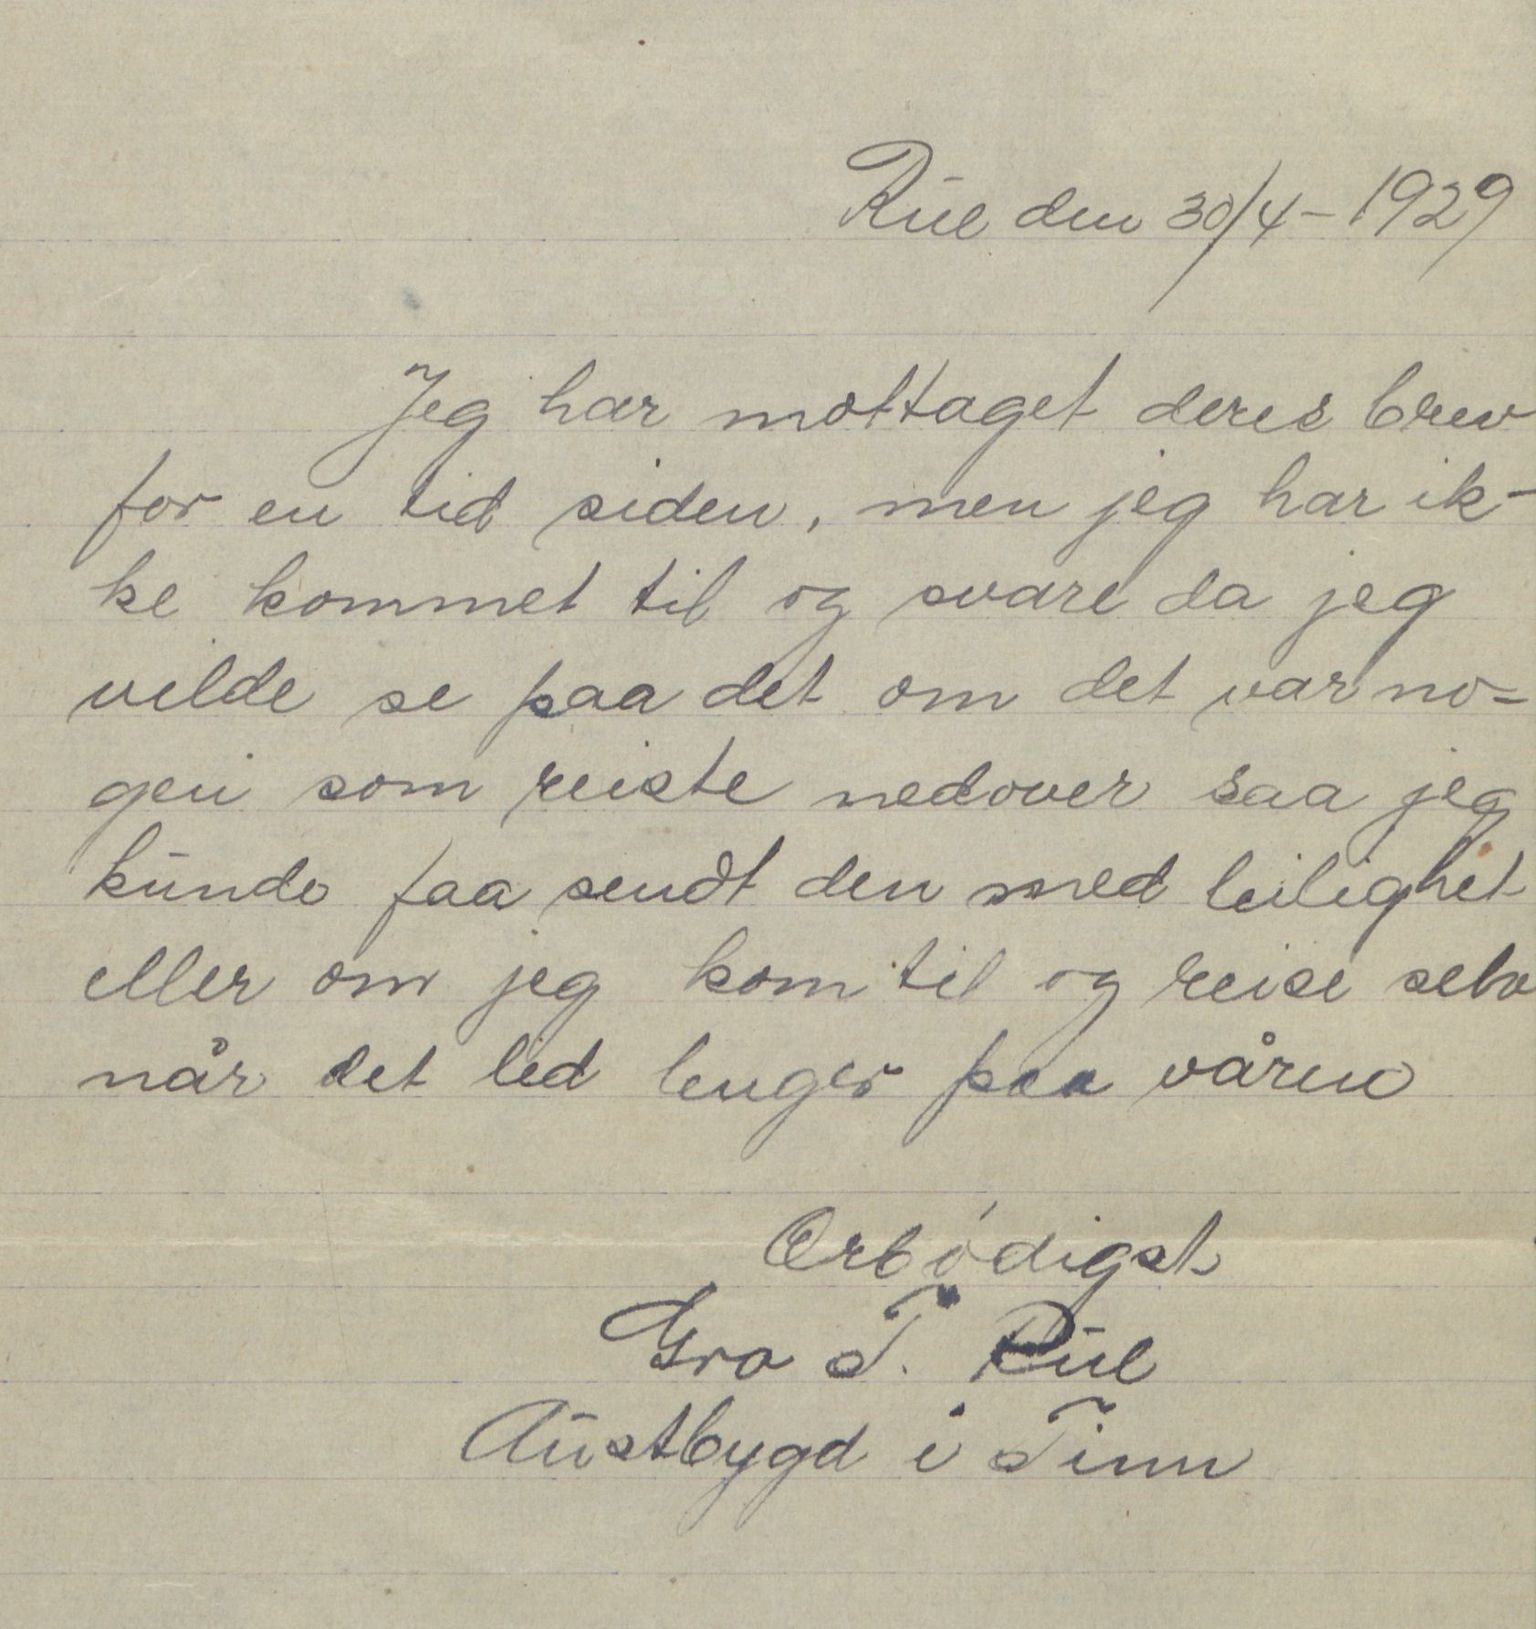 Rue den 30/4 - 1929
Jeg har mottaget deres brev
for en tid siden, men jeg har ik-
ke kommet til og svare da jeg
vilde se paa det om det var no-
gen som reiste nedover saa jeg
kunde faa sendt den med leilighet
eller om jeg kom til og reise selv
når det led lenger paa våren
Ærbødigst
Gro T. Rue
Austbygd i Tinn